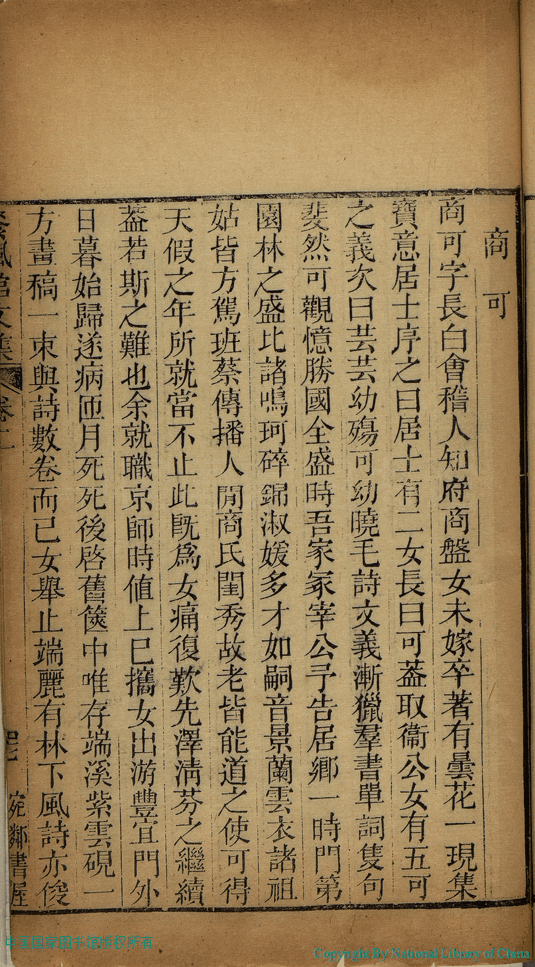 商可
商可字長白會稽人知府商盤女未嫁卒著有曇花一現集
寶意居士序之曰居士有二女長曰可葢取衞公女有五可
之義次曰芸芸幼殤可幼曉毛詩文義漸獵羣書單詞隻句
斐然可觀憶勝國全盛時吾家冢宰公予告居鄉一時門第
園林之盛比諸鳴珂碎錦淑媛多才如嗣音景蘭雲衣諸祖
姑皆方駕班蔡傳播人閒商氏閨秀故老皆能道之使可得
天假之年所就當不止此旣爲女痛復歎先澤淸芬之繼續
葢若斯之難也余就職京師時値上巳攜女出游豐宜門外
日暮始歸遂病匝月死死後啓舊篋中唯存端溪紫雲硯一
方畫稿一束與詩數卷而已女舉止端麗有林下風詩亦俊
文集 卷十 宛鄰書屋
中国国家图书馆版权所有
Copyright By National Library of China